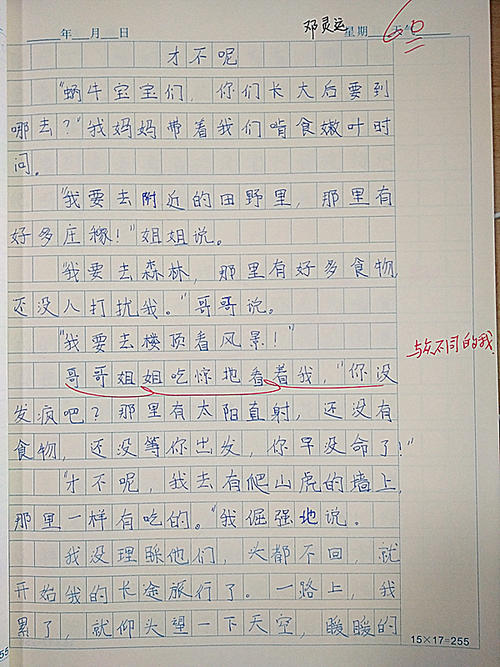 年 月 日 邓灵运 星期
才不呢
"蜗牛宝宝们，你们长大后要到
哪去？"我妈妈带着我们啃食嫩叶时
问。
"我要去附近的田野里，那里有
好多庄稼！"姐姐说。
"我要去森林，那里有好多食物，
还没人打扰我。"哥哥说。
"我要去楼顶看风景！"
与众不同的我
哥哥姐姐吃惊地看着我，"你没
发疯吧？那里有太阳直射，还没有
食物，还没等你出发，你早没命了！"
"才不呢，我去有爬山虎的墙上，
那里一样有吃的。"我倔强地说。
我没理睬他们，头都不回，就
开始我的长途旅行了。一路上，我
累了，就仰头望一下天空，暖暖的
15×17=255